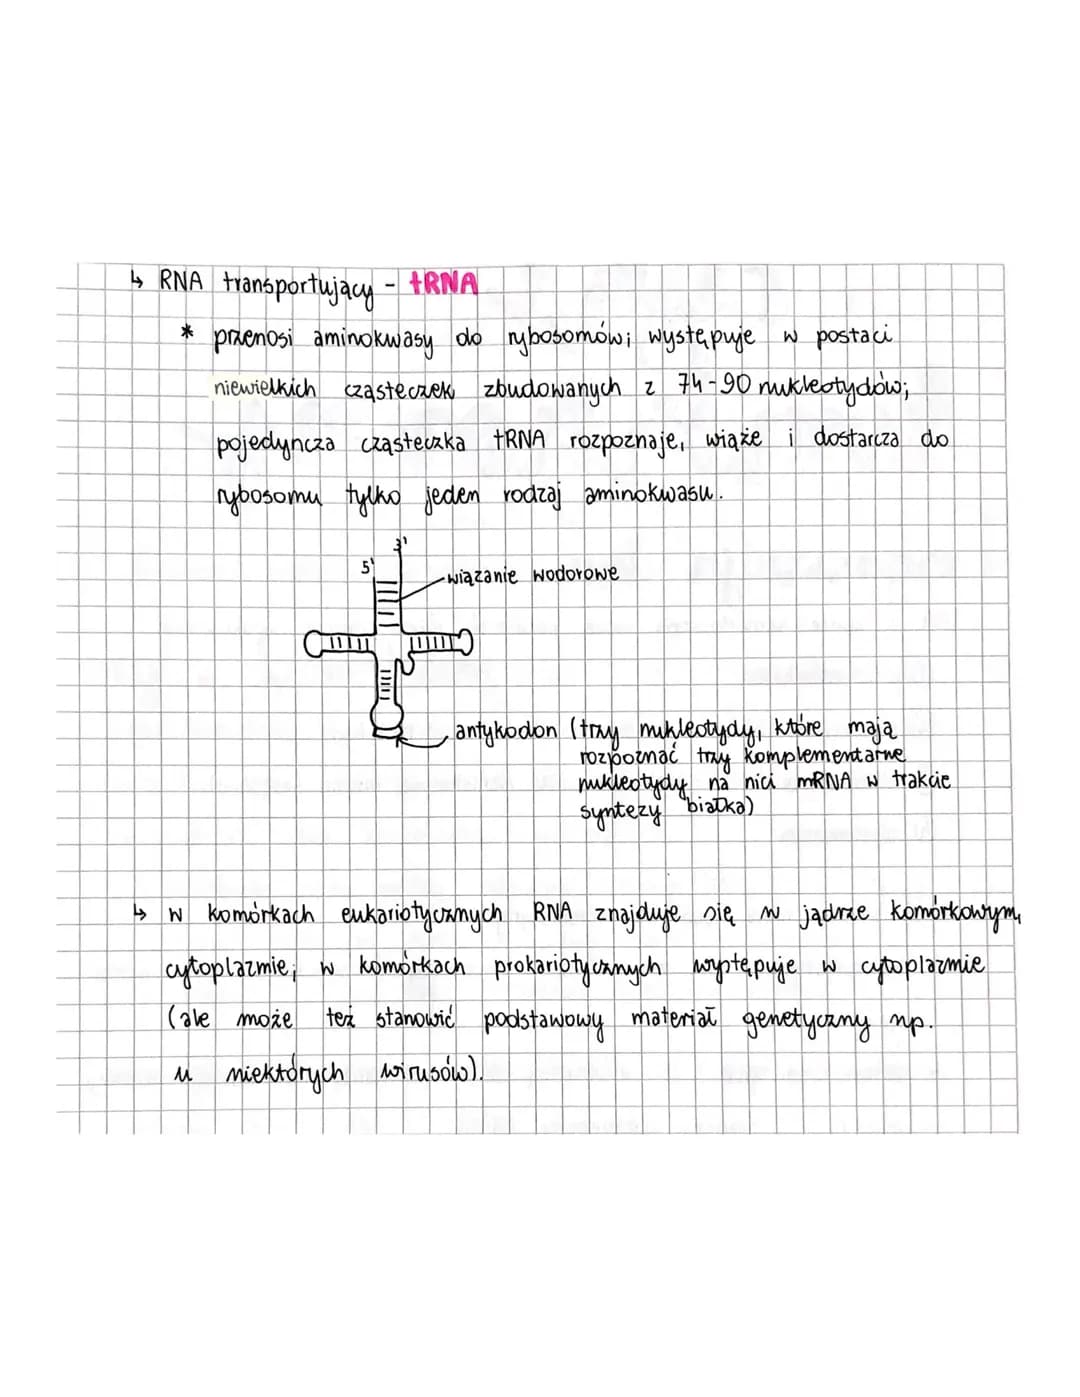 ↳ RNA transportujący - tRNA
* przenosi aminokwasy do rybosomów; występuje w postaci
niewielkich cząsteczek zbudowanych z 74-90 nukleotydów;
pojedyncza cząsteczka tRNA rozpoznaje, wiąże i dostarcza do
rybosomu tylko jeden rodzaj aminokwasu.
3'
5'
wiązanie wodorowe
antykodon (trzy nukleotydy, które mają
rozpoznać trzy komplementarne
nukleotydy na nici mRNA w trakcie
syntezy białka)
↳ w komórkach eukariotycznych RNA znajduje się w jądrze komórkowym,
cytoplazmie; w komórkach prokariotycznych występuje w cytoplazmie
(ale może też stanowić podstawowy materiał genetyczny np.
u niektórych wirusów).